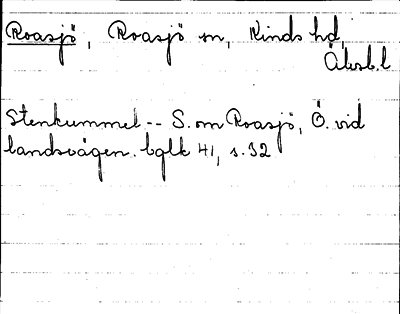 Roasjö, Roasjö sn, Kinds hd,
Älvsb.l
Stenkummel -- S. om Roasjö, Ö. vid
landsvägen. bglk 41, s. 32